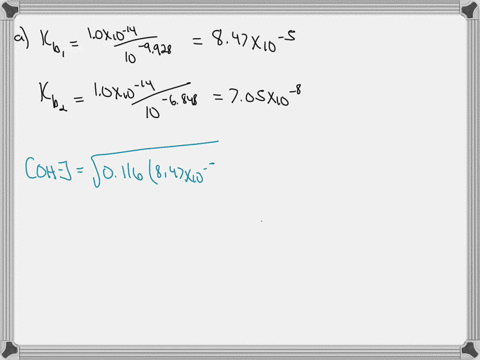 a) K_b₁ = 1.0x10^-14 / 10^-9.928 = 8.47x10^-5
K_b₂ = 1.0x10^-14 / 10^-6.848 = 7.05x10^-8
[OH-] = √0.116 (8.47x10^-